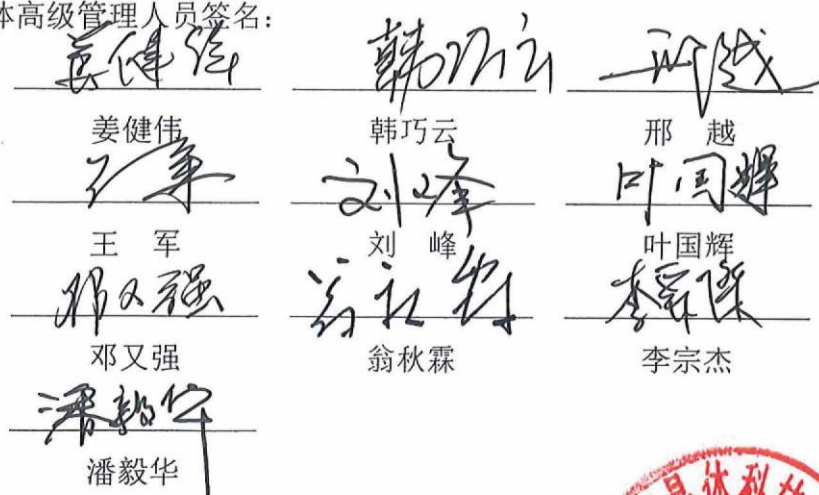 体高级管理人员签名：
姜健伟 韩巧云 邢越
姜健伟 韩巧云 邢 越
王军 刘峰 叶国辉
王 军 刘 峰 叶国辉
邓又强
邓又强 翁秋霖 李宗杰
潘毅华
潘毅华
晶体科技